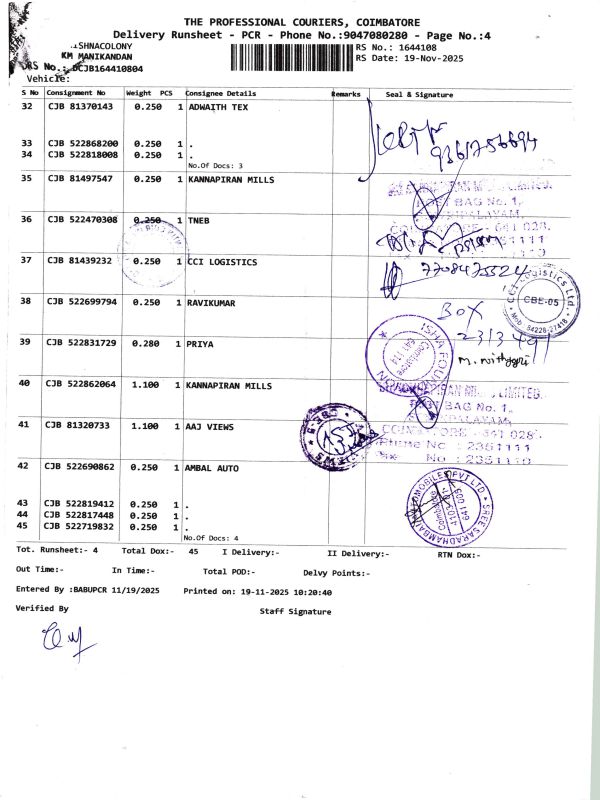 THE PROFESSIONAL COURIERS, COIMBATORE
Delivery Runsheet - PCR - Phone No.:9047080280 - Page No.:4
SHNACOLONY
RS No.: 1644108
KM MANIKANDAN
RS Date: 19-Nov-2025
RS No.: DCJB164410804
Vehicle:
S No Consignment No Weight PCS Consignee Details Remarks Seal & Signature
32 CJB 81370143 0.250 1 ADWAITH TEX
9361756694
33 CJB 522868200 0.250 1 .
34 CJB 522818008 0.250 1 .
No.Of Docs: 3
35 CJB 81497547 0.250 1 KANNAPIRAN MILLS
BAG No. 1,
641 028.
36 CJB 522470308 0.250 1 TNEB
37 CJB 81439232 0.250 1 CCI LOGISTICS
7708475524
CCI Logistics Ltd.
CBE-05
38 CJB 522699794 0.250 1 RAVIKUMAR
BOX
39 CJB 522831729 0.280 1 PRIYA
ISHA FOUNDATION
Coimbatore
641 114
40 CJB 522862064 1.100 1 KANNAPIRAN MILLS
LIMITED.
BAG No. 1,
641 028
41 CJB 81320733 1.100 1 AAJ VIEWS
Phone No : 2351111
No. : 2351110
42 CJB 522690862 0.250 1 AMBAL AUTO
43 CJB 522819412 0.250 1 .
44 CJB 522817448 0.250 1 .
45 CJB 522719832 0.250 1 .
No.Of Docs: 4
Tot. Runsheet:- 4 Total Dox:- 45 I Delivery:- II Delivery:- RTN Dox:-
Out Time:- In Time:- Total POD:- Delvy Points:-
Entered By :BABUPCR 11/19/2025 Printed on: 19-11-2025 10:20:40
Verified By Staff Signature